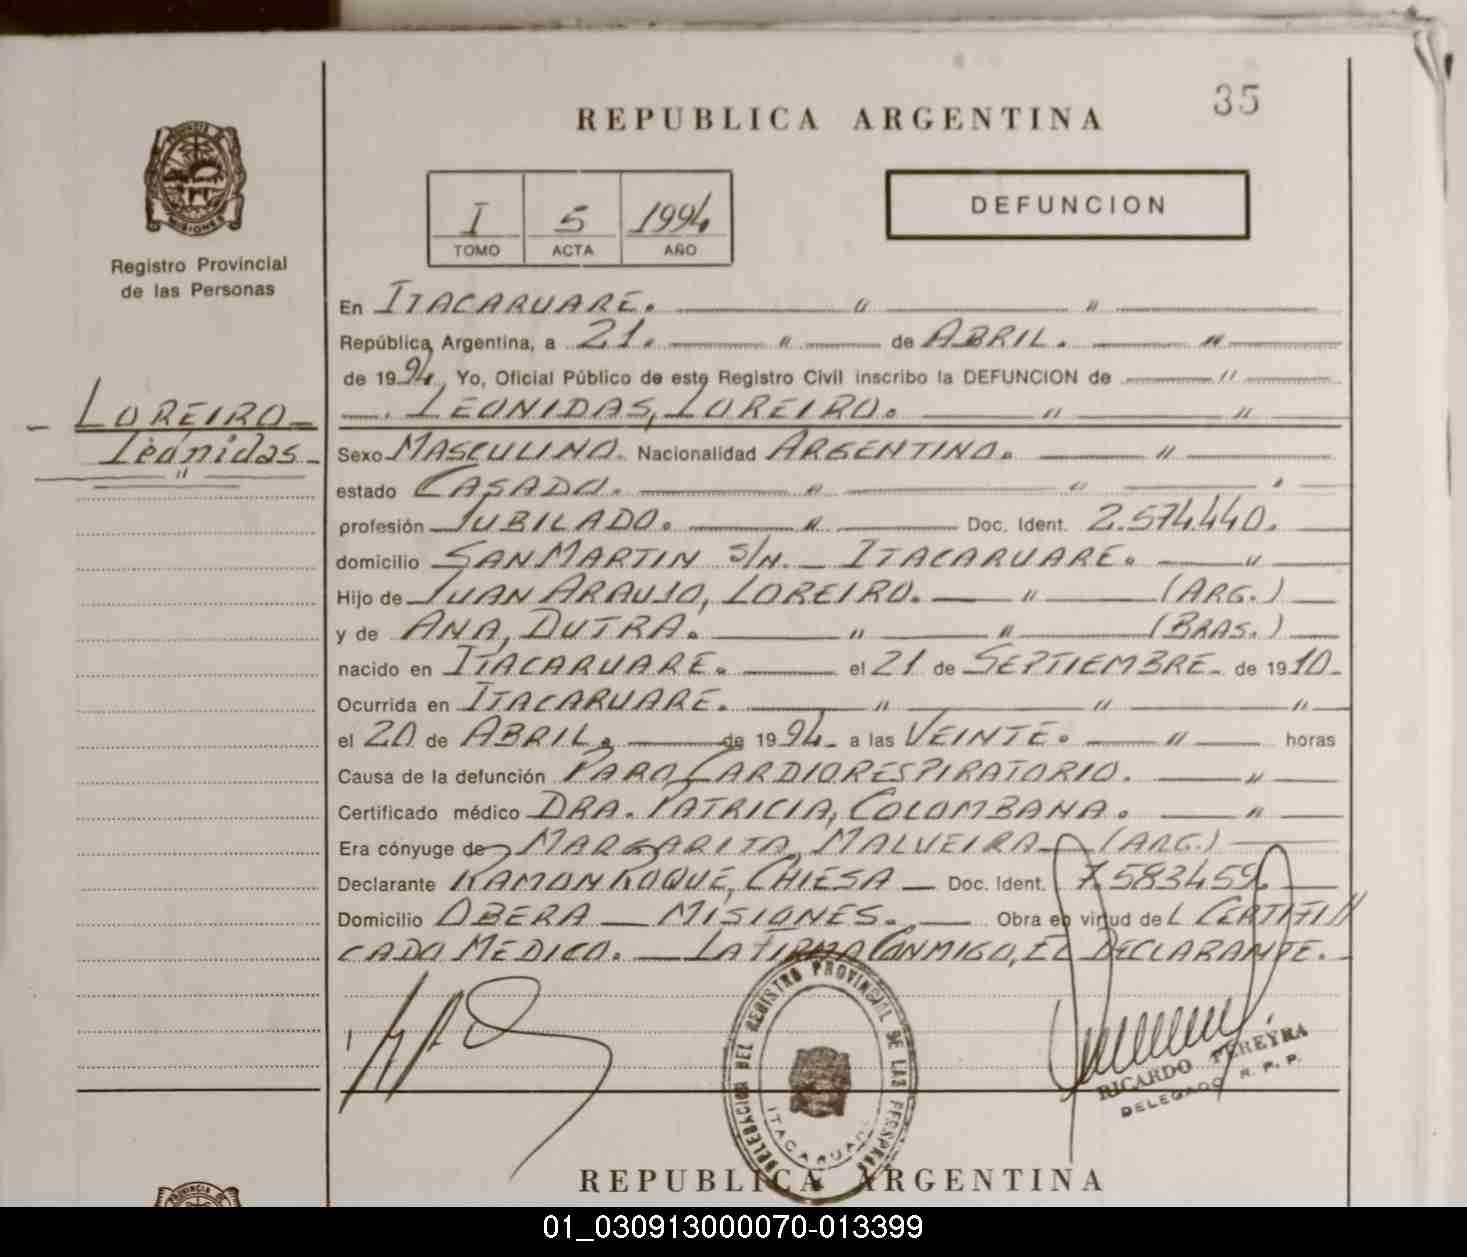 35
REPUBLICA ARGENTINA
I 5 1994
TOMO ACTA AÑO
DEFUNCION
PROVINCIA DE MISIONES
Registro Provincial
de las Personas
LOREIRO
Leónidas
En ITACARUARE. " "
República Argentina, a 21. " de ABRIL. "
de 1994, Yo, Oficial Público de este Registro Civil inscribo la DEFUNCION de "
LEONIDAS, LOREIRO. " "
Sexo MASCULINO. Nacionalidad ARGENTINO. "
estado CASADO. " "
profesión JUBILADO. " Doc. Ident. 2.574.440.
domicilio SAN MARTIN S/N. ITACARUARE. "
Hijo de JUAN ARAUJO, LOREIRO. " (ARG.)
y de ANA, DUTRA. " " (BRAS.)
nacido en ITACARUARE. el 21 de SEPTIEMBRE de 1910
Ocurrida en ITACARUARE. " " "
el 20 de ABRIL. de 1994 a las VEINTE. " horas
Causa de la defunción PARO CARDIORESPIRATORIO. "
Certificado médico DRA. PATRICIA, COLOMBANA. "
Era cónyuge de MARGARITA, MALVEIRA (ARG.)
Declarante RAMON ROQUE, CHIESA Doc. Ident. 7.583459.
Domicilio OBERA MISIONES. Obra en virtud de L CERTIFI
CADO MEDICO. LA FIRMA CONMIGO, EL DECLARANTE.
DELEGACION DEL REGISTRO PROVINCIAL DE LAS PERSONAS
ITACARUARE
RICARDO PEREYRA
DELEGADO R. P. P.
REPUBLICA ARGENTINA
01_030913000070-013399